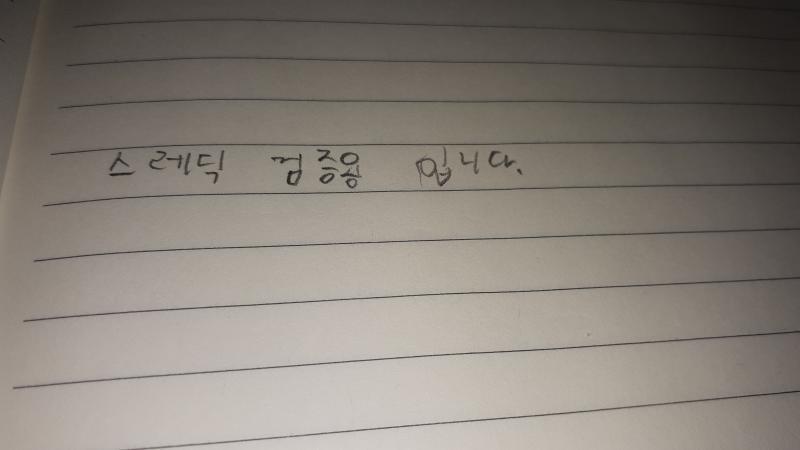 스레딕 검증용 입니다.